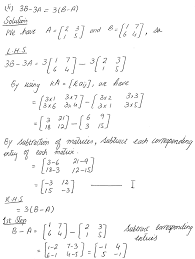 (v) 3B-3A = 3(B-A)
Solution
We have A = [2 3; 1 5] and B = [1 7; 6 4], so
L.H.S
3B-3A = 3[1 7; 6 4] - 3[2 3; 1 5]
By using kA = [kaij], we have
= [3x1 3x7; 3x6 3x4] - [3x2 3x3; 3x1 3x5]
= [3 21; 18 12] - [6 9; 3 15]
By subtraction of matrices, subtract each corresponding
entry of each matrix.
= [3-6 21-9; 18-3 12-15]
= [-3 12; 15 -3] I
R.H.S
= 3(B-A)
1st Step
B-A = [1 7; 6 4] - [2 3; 1 5] Subtract corresponding
entries
= [1-2 7-3; 6-1 4-5] = [-1 4; 5 -1]